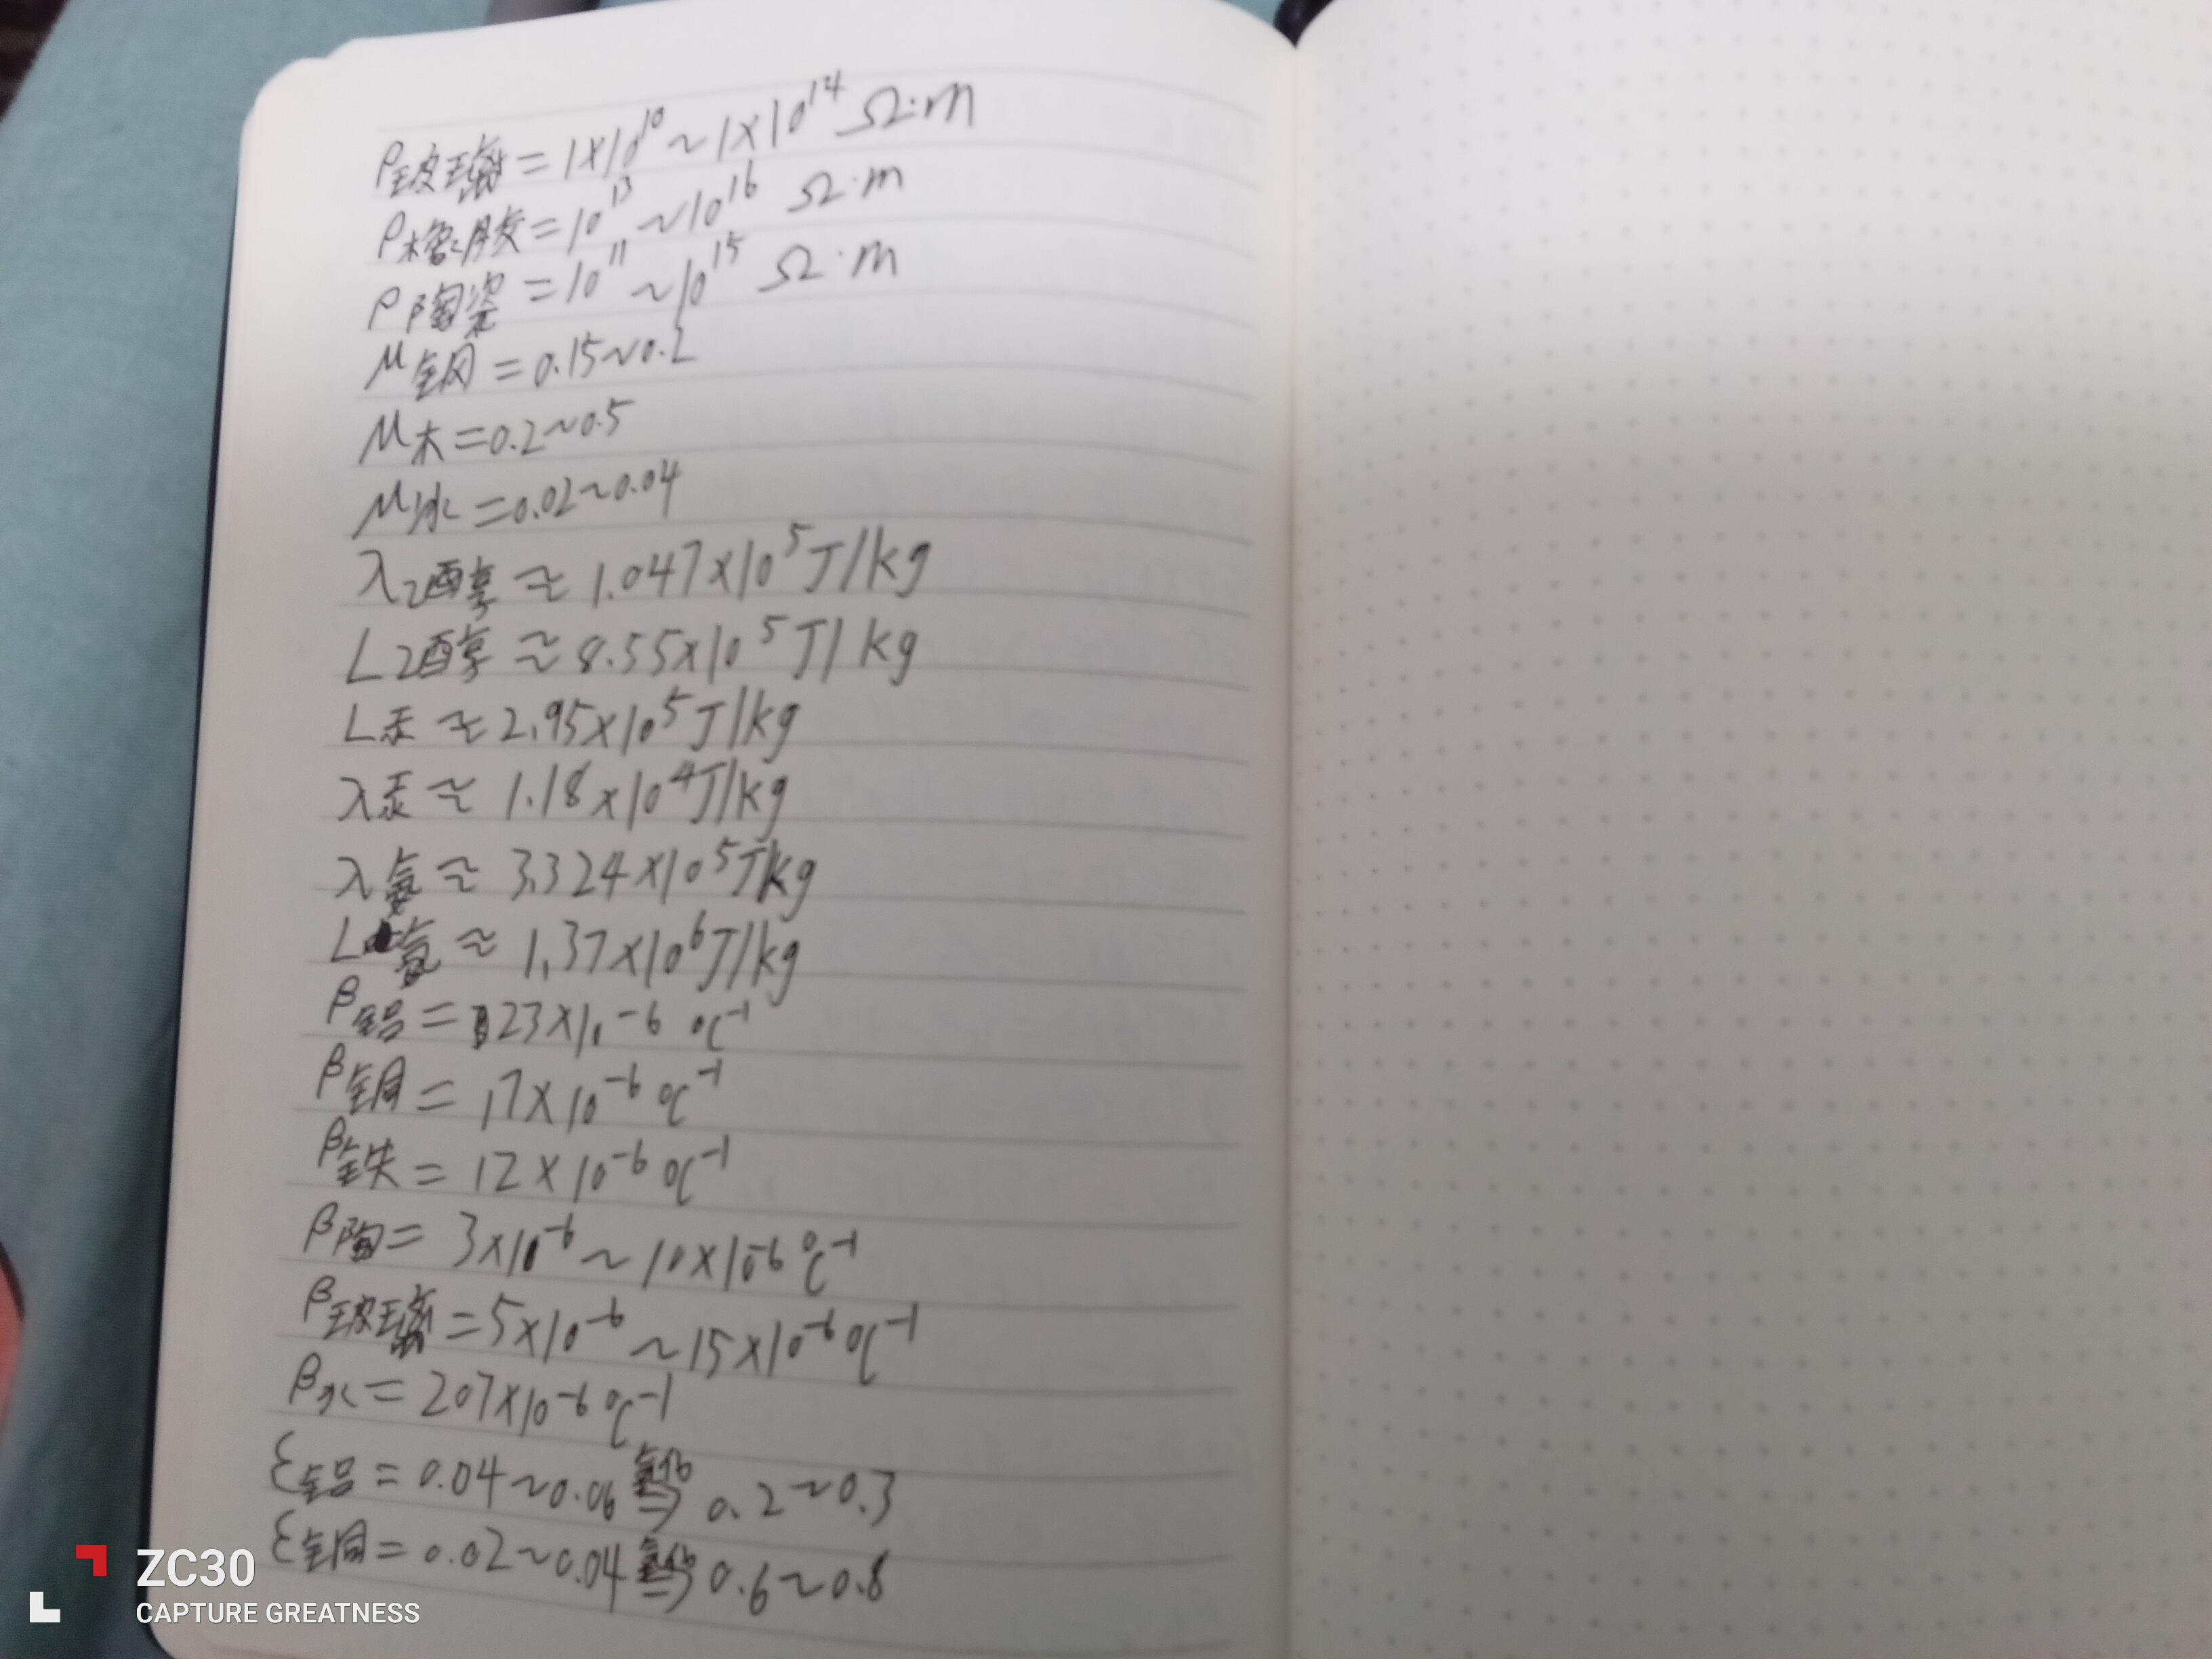 ρ玻璃 = 1×10^10 ~ 1×10^14 Ω·m
ρ橡胶 = 10^13 ~ 10^16 Ω·m
ρ陶瓷 = 10^11 ~ 10^15 Ω·m
μ钢 = 0.15~0.2
μ木 = 0.2~0.5
μ冰 = 0.02~0.04
λ乙醇 ≈ 1.047×10^5 J/kg
L乙醇 ≈ 8.55×10^5 J/kg
L汞 ≈ 2.95×10^5 J/kg
λ汞 ≈ 1.18×10^4 J/kg
λ氨 ≈ 3.324×10^5 J/kg
L氨 ≈ 1.37×10^6 J/kg
β铝 = 23×10^-6 ℃^-1
β铜 = 17×10^-6 ℃^-1
β铁 = 12×10^-6 ℃^-1
β陶 = 3×10^-6 ~ 10×10^-6 ℃^-1
β玻璃 = 5×10^-6 ~ 15×10^-6 ℃^-1
β水 = 207×10^-6 ℃^-1
ε铝 = 0.04~0.06 氧化⇒ 0.2~0.3
ε铜 = 0.02~0.04 氧化⇒ 0.6~0.8
ZC30
CAPTURE GREATNESS